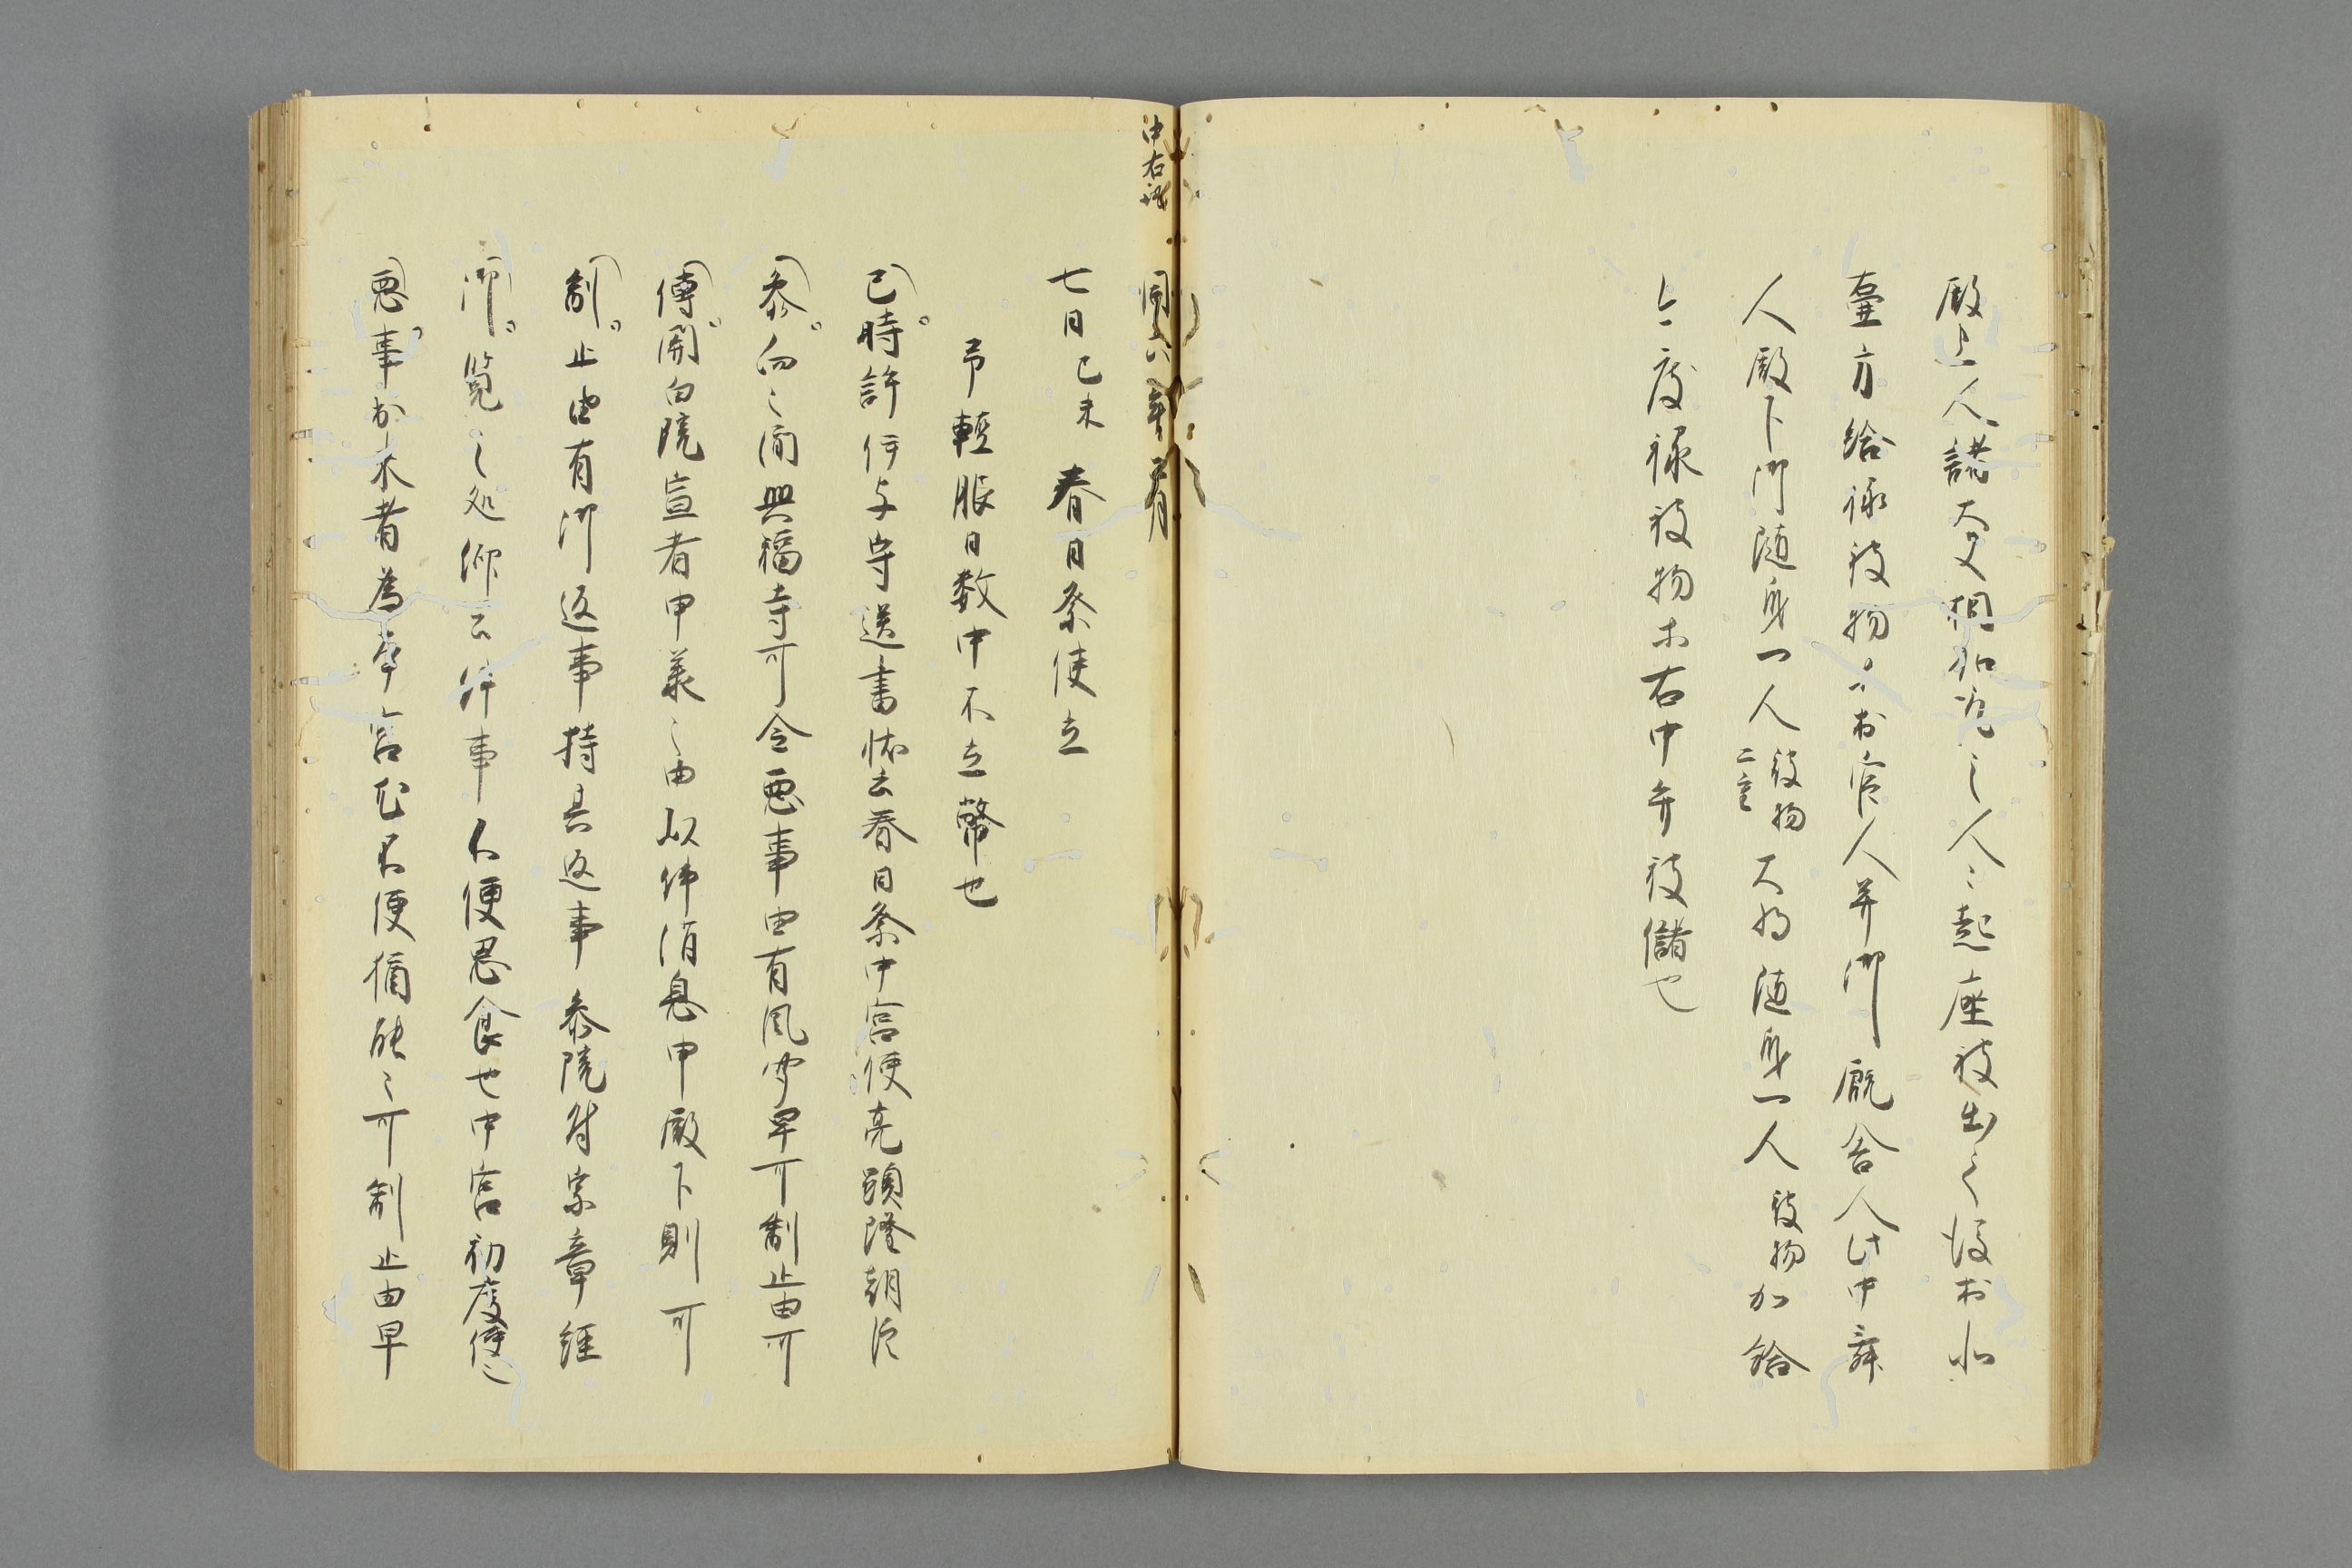 殿上人諸大夫相加了之人〻起座被出之後於北
臺方給祿被物〻於官人并御廐舍人此中舞
人殿下御随身一人被物二重大将随身一人被物加給
今度祿被物木右中弁被儲也
中右記
同六年二月
七日己未 春日祭使立
予輕服日数中不立幣也
巳時許伊与守送書状云春日祭中宮使亮顕隆朝臣
参向之間興福寺可令悪事由有風聞早可制止由可
傳聞白院宣者申義之由以件消息申殿下則可
制止由有御返事持具返事参院付宗章経
御覧之処仰云件事不便思食也中宮初度使之
悪事出来者為奉宮尤不便猶能〻可制止由早